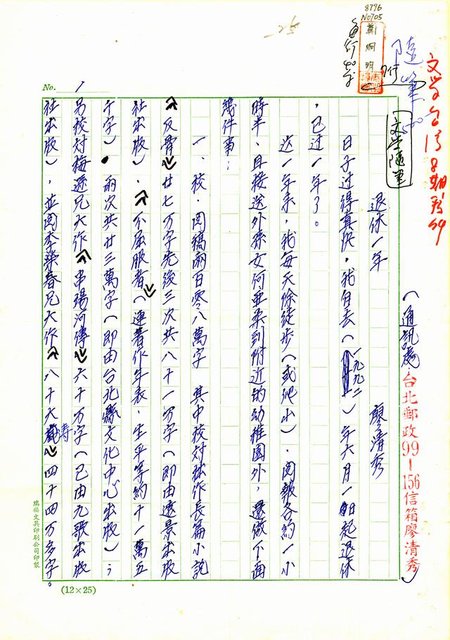 8776
No705
隨筆
文學台灣
文學隨筆
(通訊處台北郵政99-156信箱廖清秀)
退休一年
廖清秀
日子過得真快,我自去(一九九二)年六月一日起退休
,已過一年了。
這一年來,我每天除徒步(或爬山)、閱報各約一小
時半,且接送外孫女何亜來到附近的幼稚園外,還做下面
幾件事:
一、校、閱稿兩百零八萬字 其中校對拙作長篇小說
《反骨》廿七萬字先後三次共八十一萬字(即由遠景出版
社出版)、《不屈服者》(連著作年表、生平等約十一萬五
千字)兩次共廿三萬字(即由台北縣文化中心出版);
另校對梅遜兄大作《串場河傳》六十萬字(已由九歌出版
社出版),並閱李榮春兄大作《八十大壽》四十四萬多字。
No. 1
(12×25)